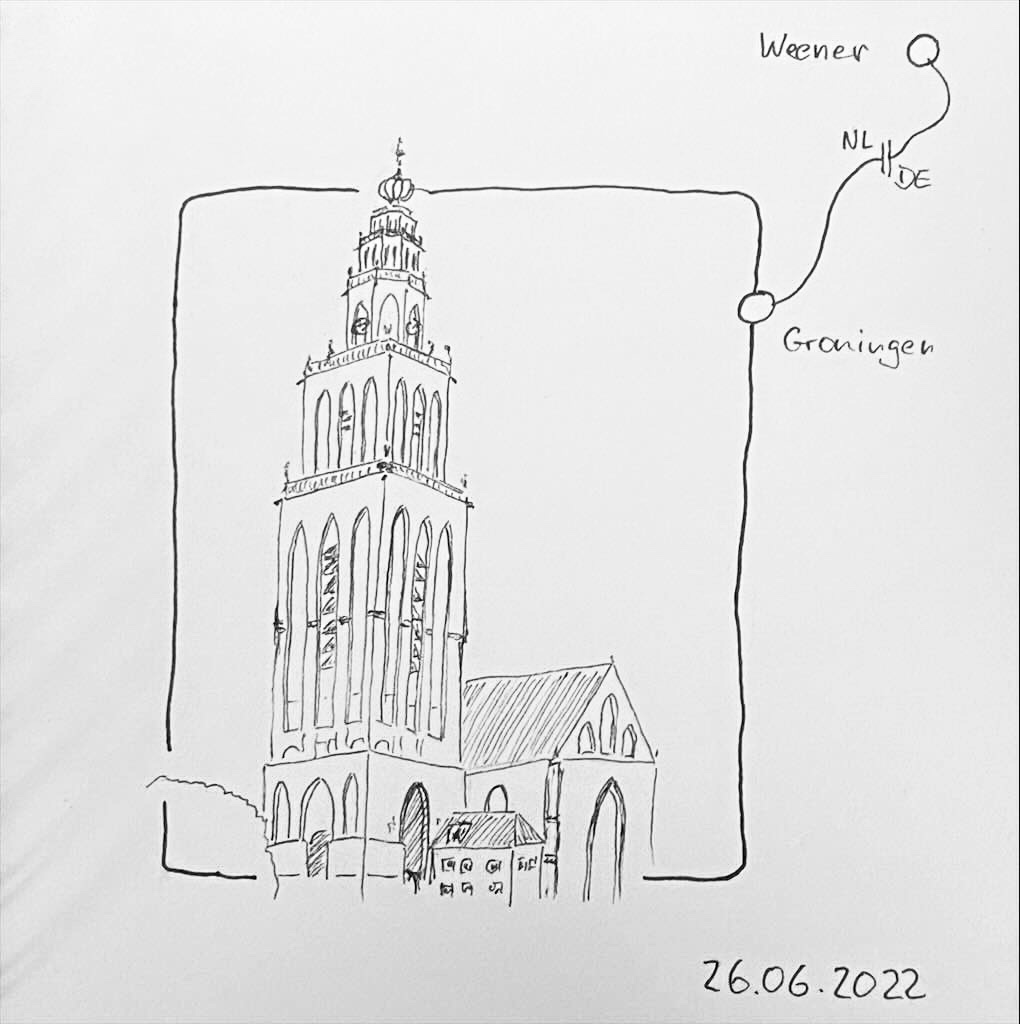 Weener
NL
DE
Groningen
26.06.2022